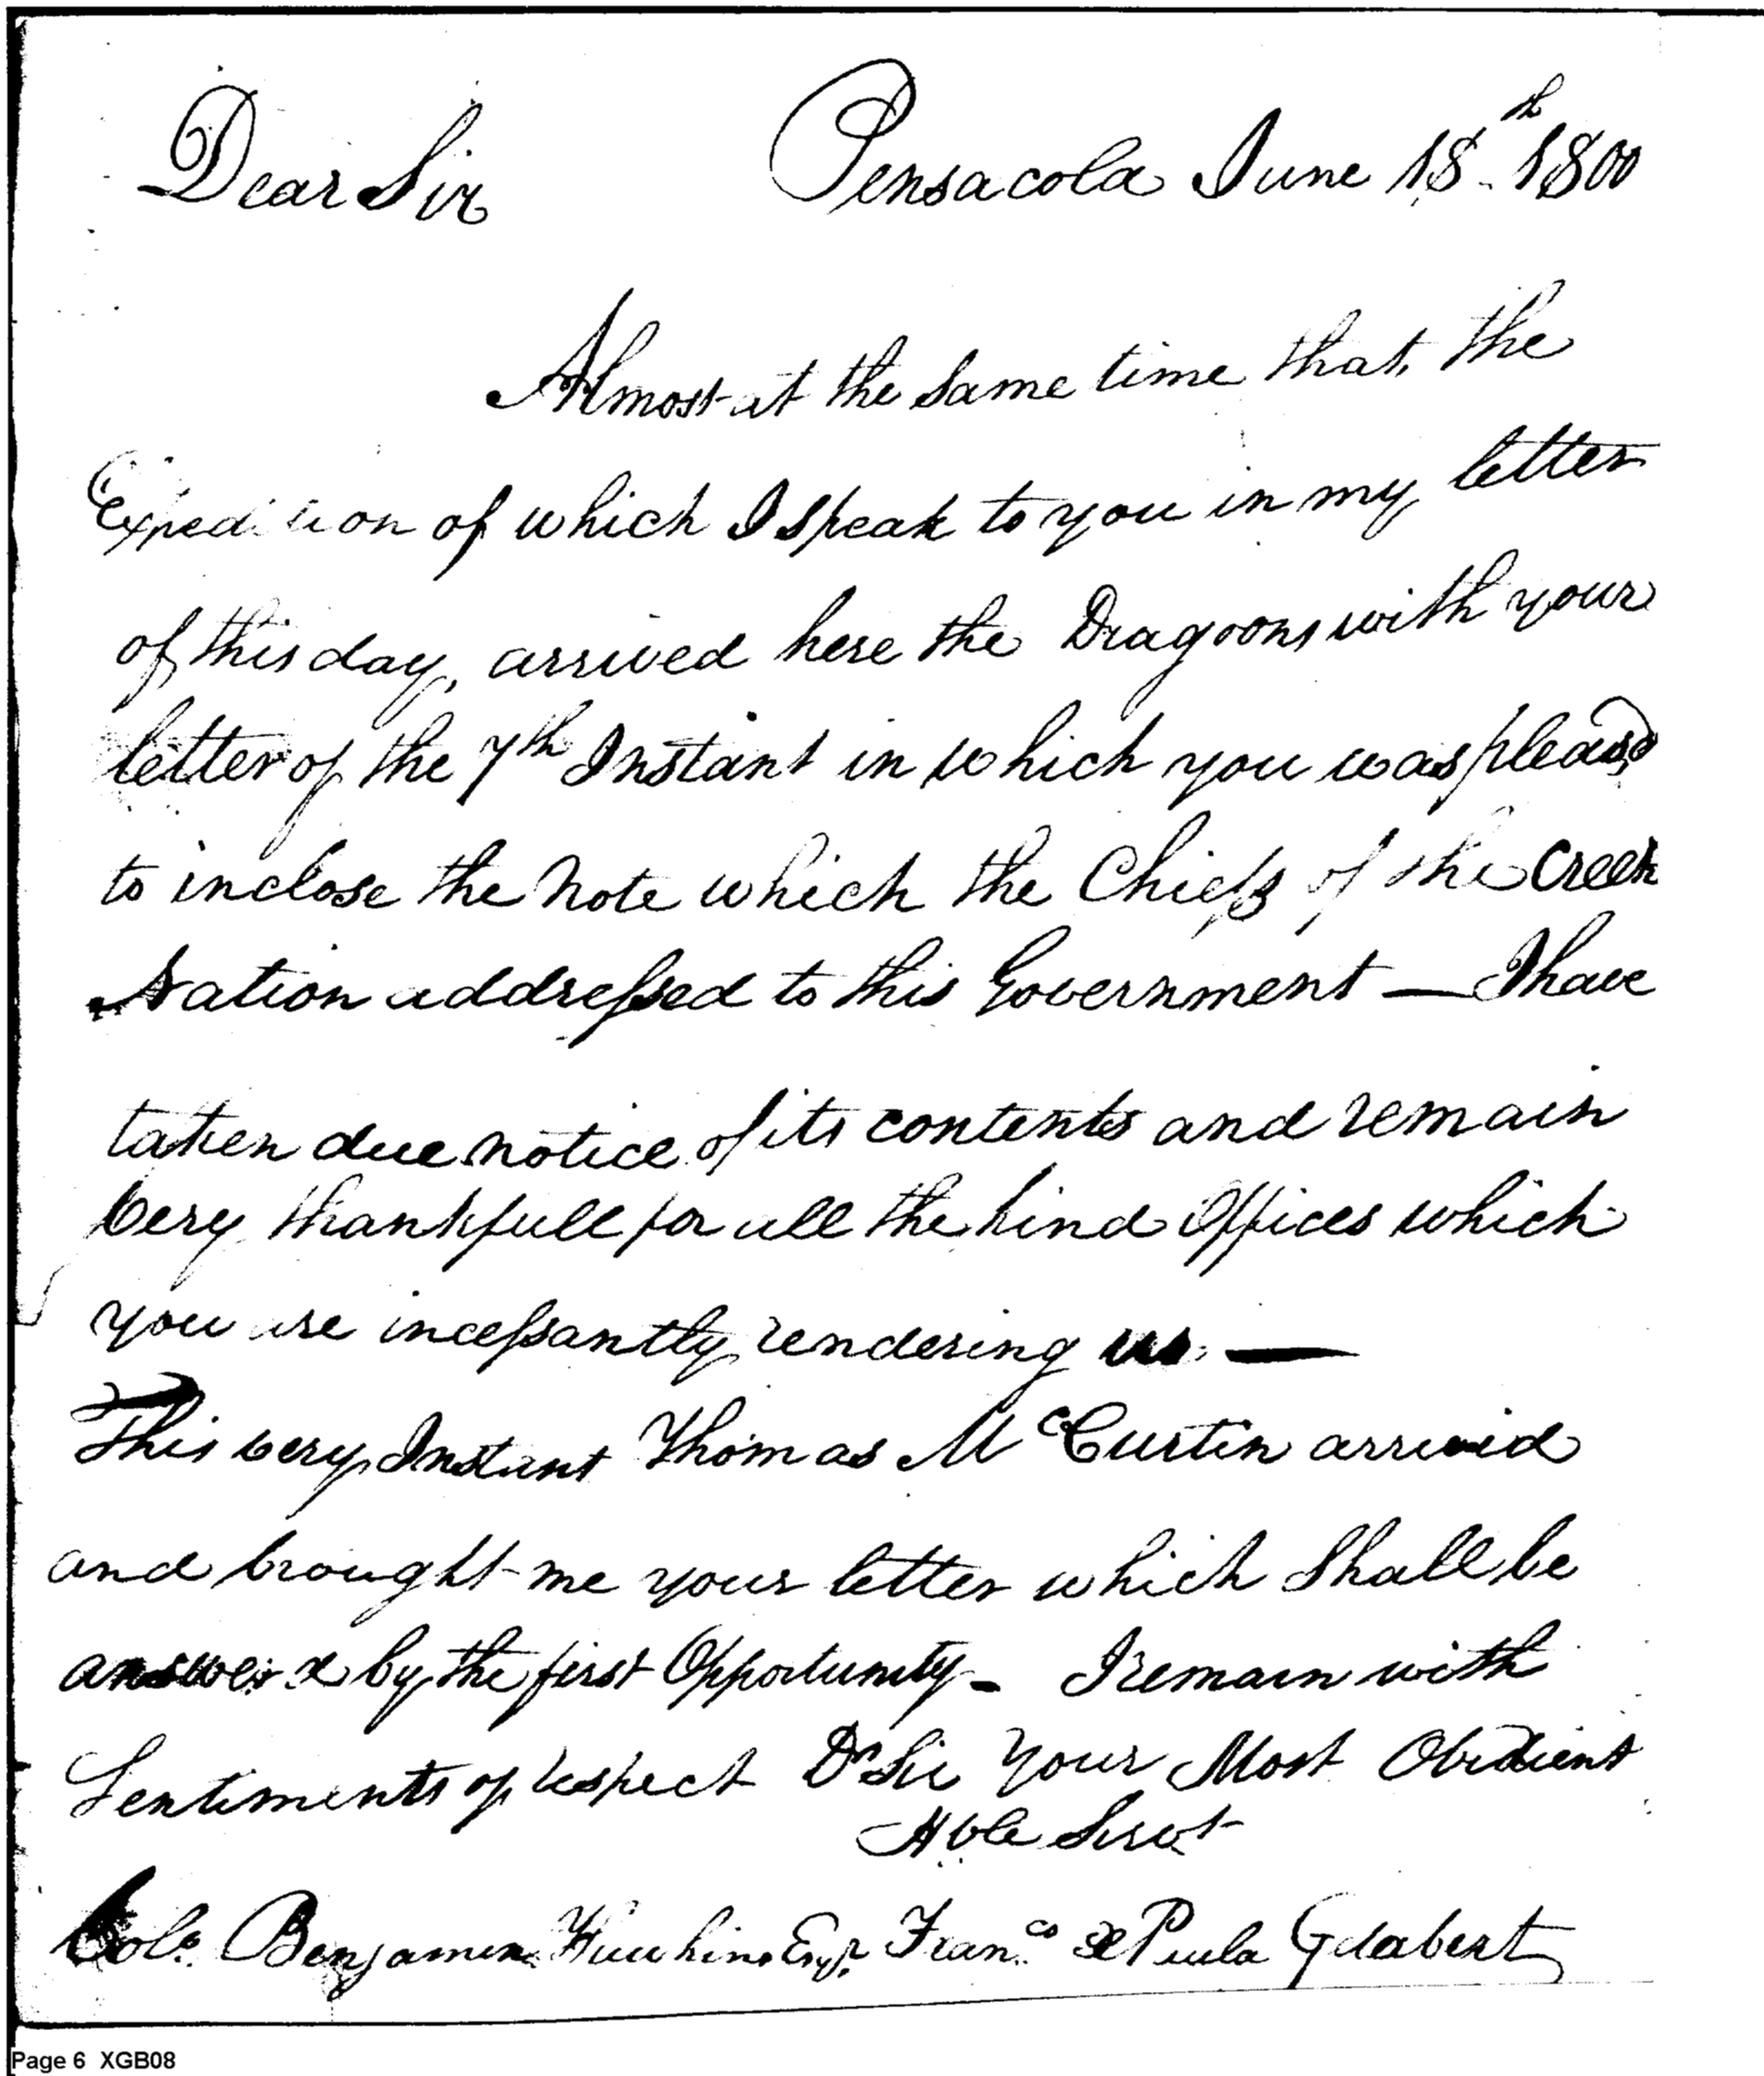 Dear Sir Pensacola June 18th 1800
Almost at the same time that the
Expedition of which I speak to you in my letter
of this day, arrived here the Dragoons with your
letter of the 7th Instant in which you was pleasd
to inclose the Note which the Chiefs of the Creek
Nation addressed to this Government — I have
taken due notice of its contents and remain
very thankfull for all the kind Offices which
you are incessantly rendering us —
This very Instant Thomas McCurtin arrived
and brought me your letter which shall be
answerd by the first Opportunity - I remain with
Sentiments of respect Dr Sir Your Most Obedient
Hble Servt
Colo. Benjamin Hawkins Esqr. Franco. de Paula Gelabert
Page 6 XGB08